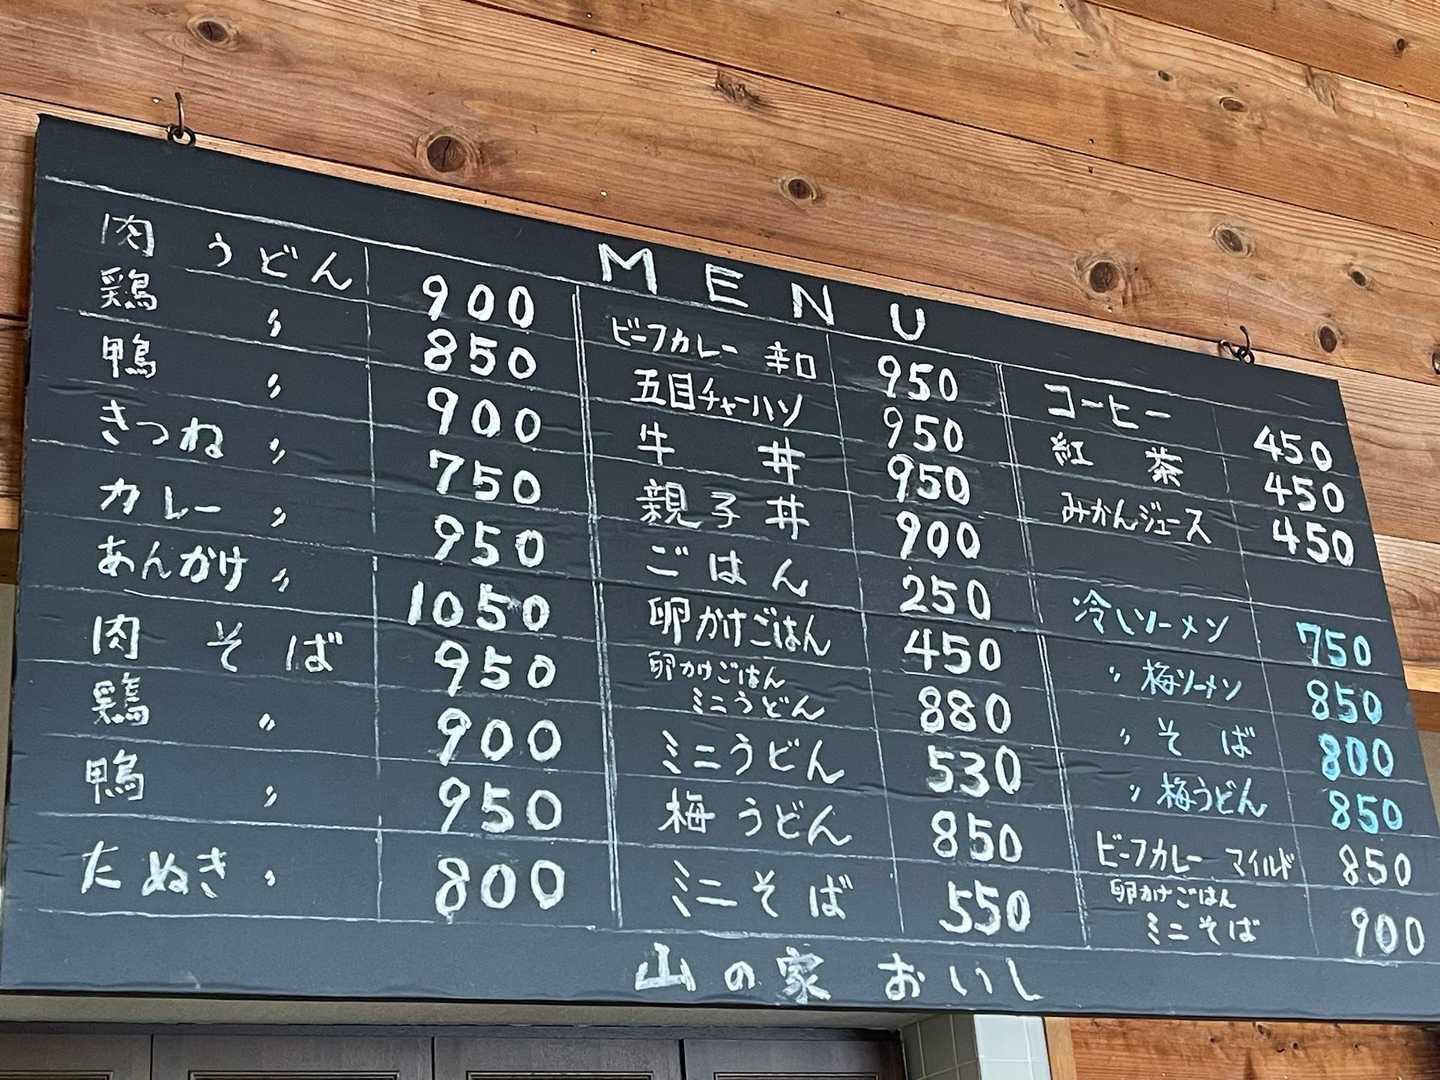 MENU
肉 うどん 900
鶏 〃 850
鴨 〃 900
きつね 〃 750
カレー 〃 950
あんかけ 〃 1050
肉 そば 950
鶏 〃 900
鴨 〃 950
たぬき 〃 800
ビーフカレー 辛口 950
五目チャーハン 950
牛 丼 950
親子丼 900
ごはん 250
卵かけごはん 450
卵かけごはん
ミニうどん 880
ミニうどん 530
梅うどん 850
ミニそば 550
コーヒー 450
紅 茶 450
みかんジュース 450
冷しソーメン 750
〃 梅ソーメン 850
〃 そば 800
〃 梅うどん 850
ビーフカレー マイルド 850
卵かけごはん
ミニそば 900
山の家 おいし